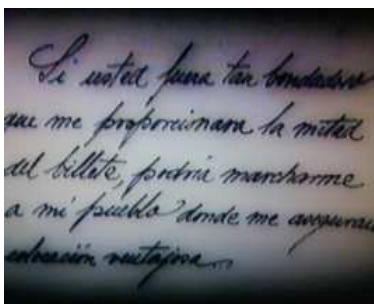 Si usted fuera tan bondadoso
que me proporcionara la mitad
del billete, podría marcharme
a mi pueblo donde me aseguran
colocación ventajosa...